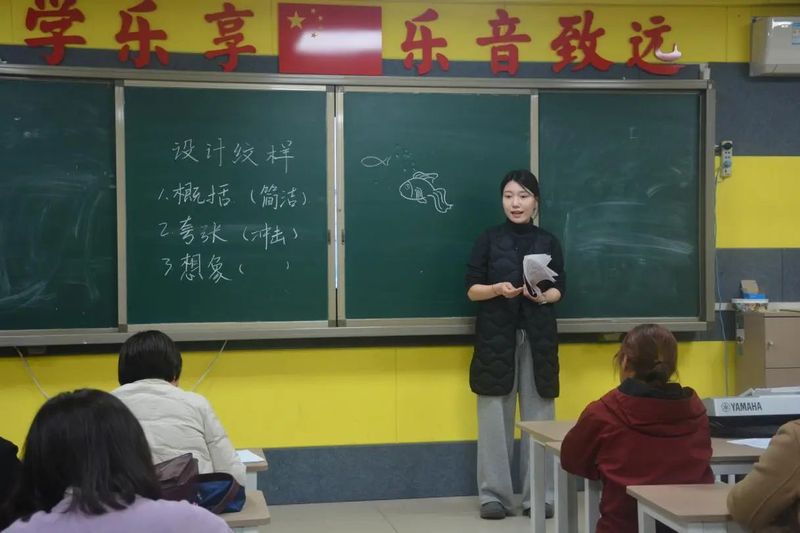 学乐享 乐音致远
设计纹样
1.概括（简洁）
2.夸张（冲击）
3想象（ ）
YAMAHA